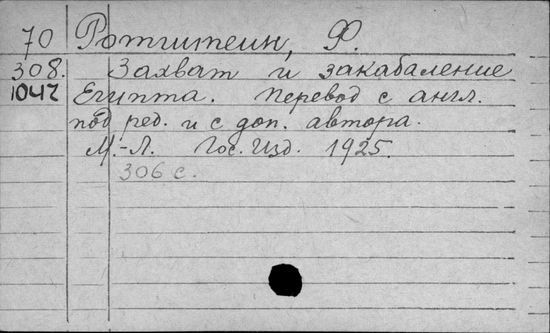 70 Ротштеин, Ф.
308. Захват и закабаление
1042 Египта. Перевод с англ.
под ред. и с доп. автора.
М.-Л. Гос. Изд. 1925.
306 с.